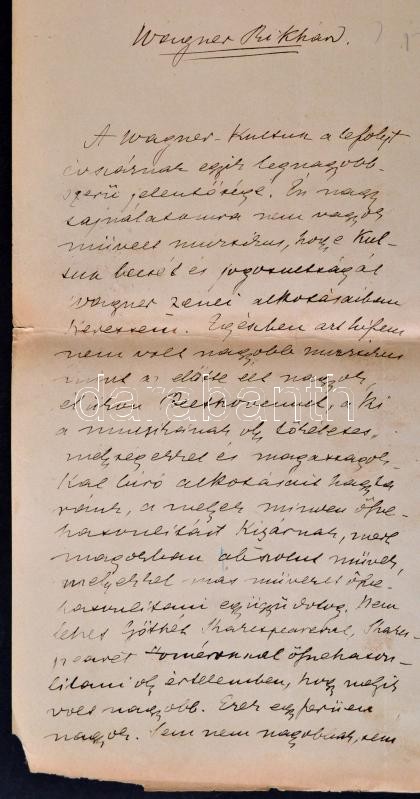 Wagner Rikhárd.
A Wagner-Kultus a lefolyt
évszáznak egyik legnagyobb-
szerű jelentősége. Én nagy
sajnálatomra nem vagyok
művelt muzsikus, hogy e Kul-
tus becsét és jogosultságát
Wagner zenei alkotásaiban
keressem. Egészben azt hiszem
nem volt nagyobb muzsikus
mint az előtte élt nagyok,
Beethovennél, a ki
a muzsikának oly tökéletes,
mélységekkel és magasságok-
kal bíró alkotásait hagyta
ránk, a melyek minden össze-
hasonlítást kizárnak, mert
magokban absolut művek,
melyekkel más műveket össze-
hasonlítani együgyű dolog. Nem
lehet Göthét Shakespearevel, Shakes-
pearét Homérossal összehason-
lítani oly értelemben, hogy melyik
volt nagyobb. Ezek egyformán
nagyok. Sem nem nagyobbak, sem
darabanth